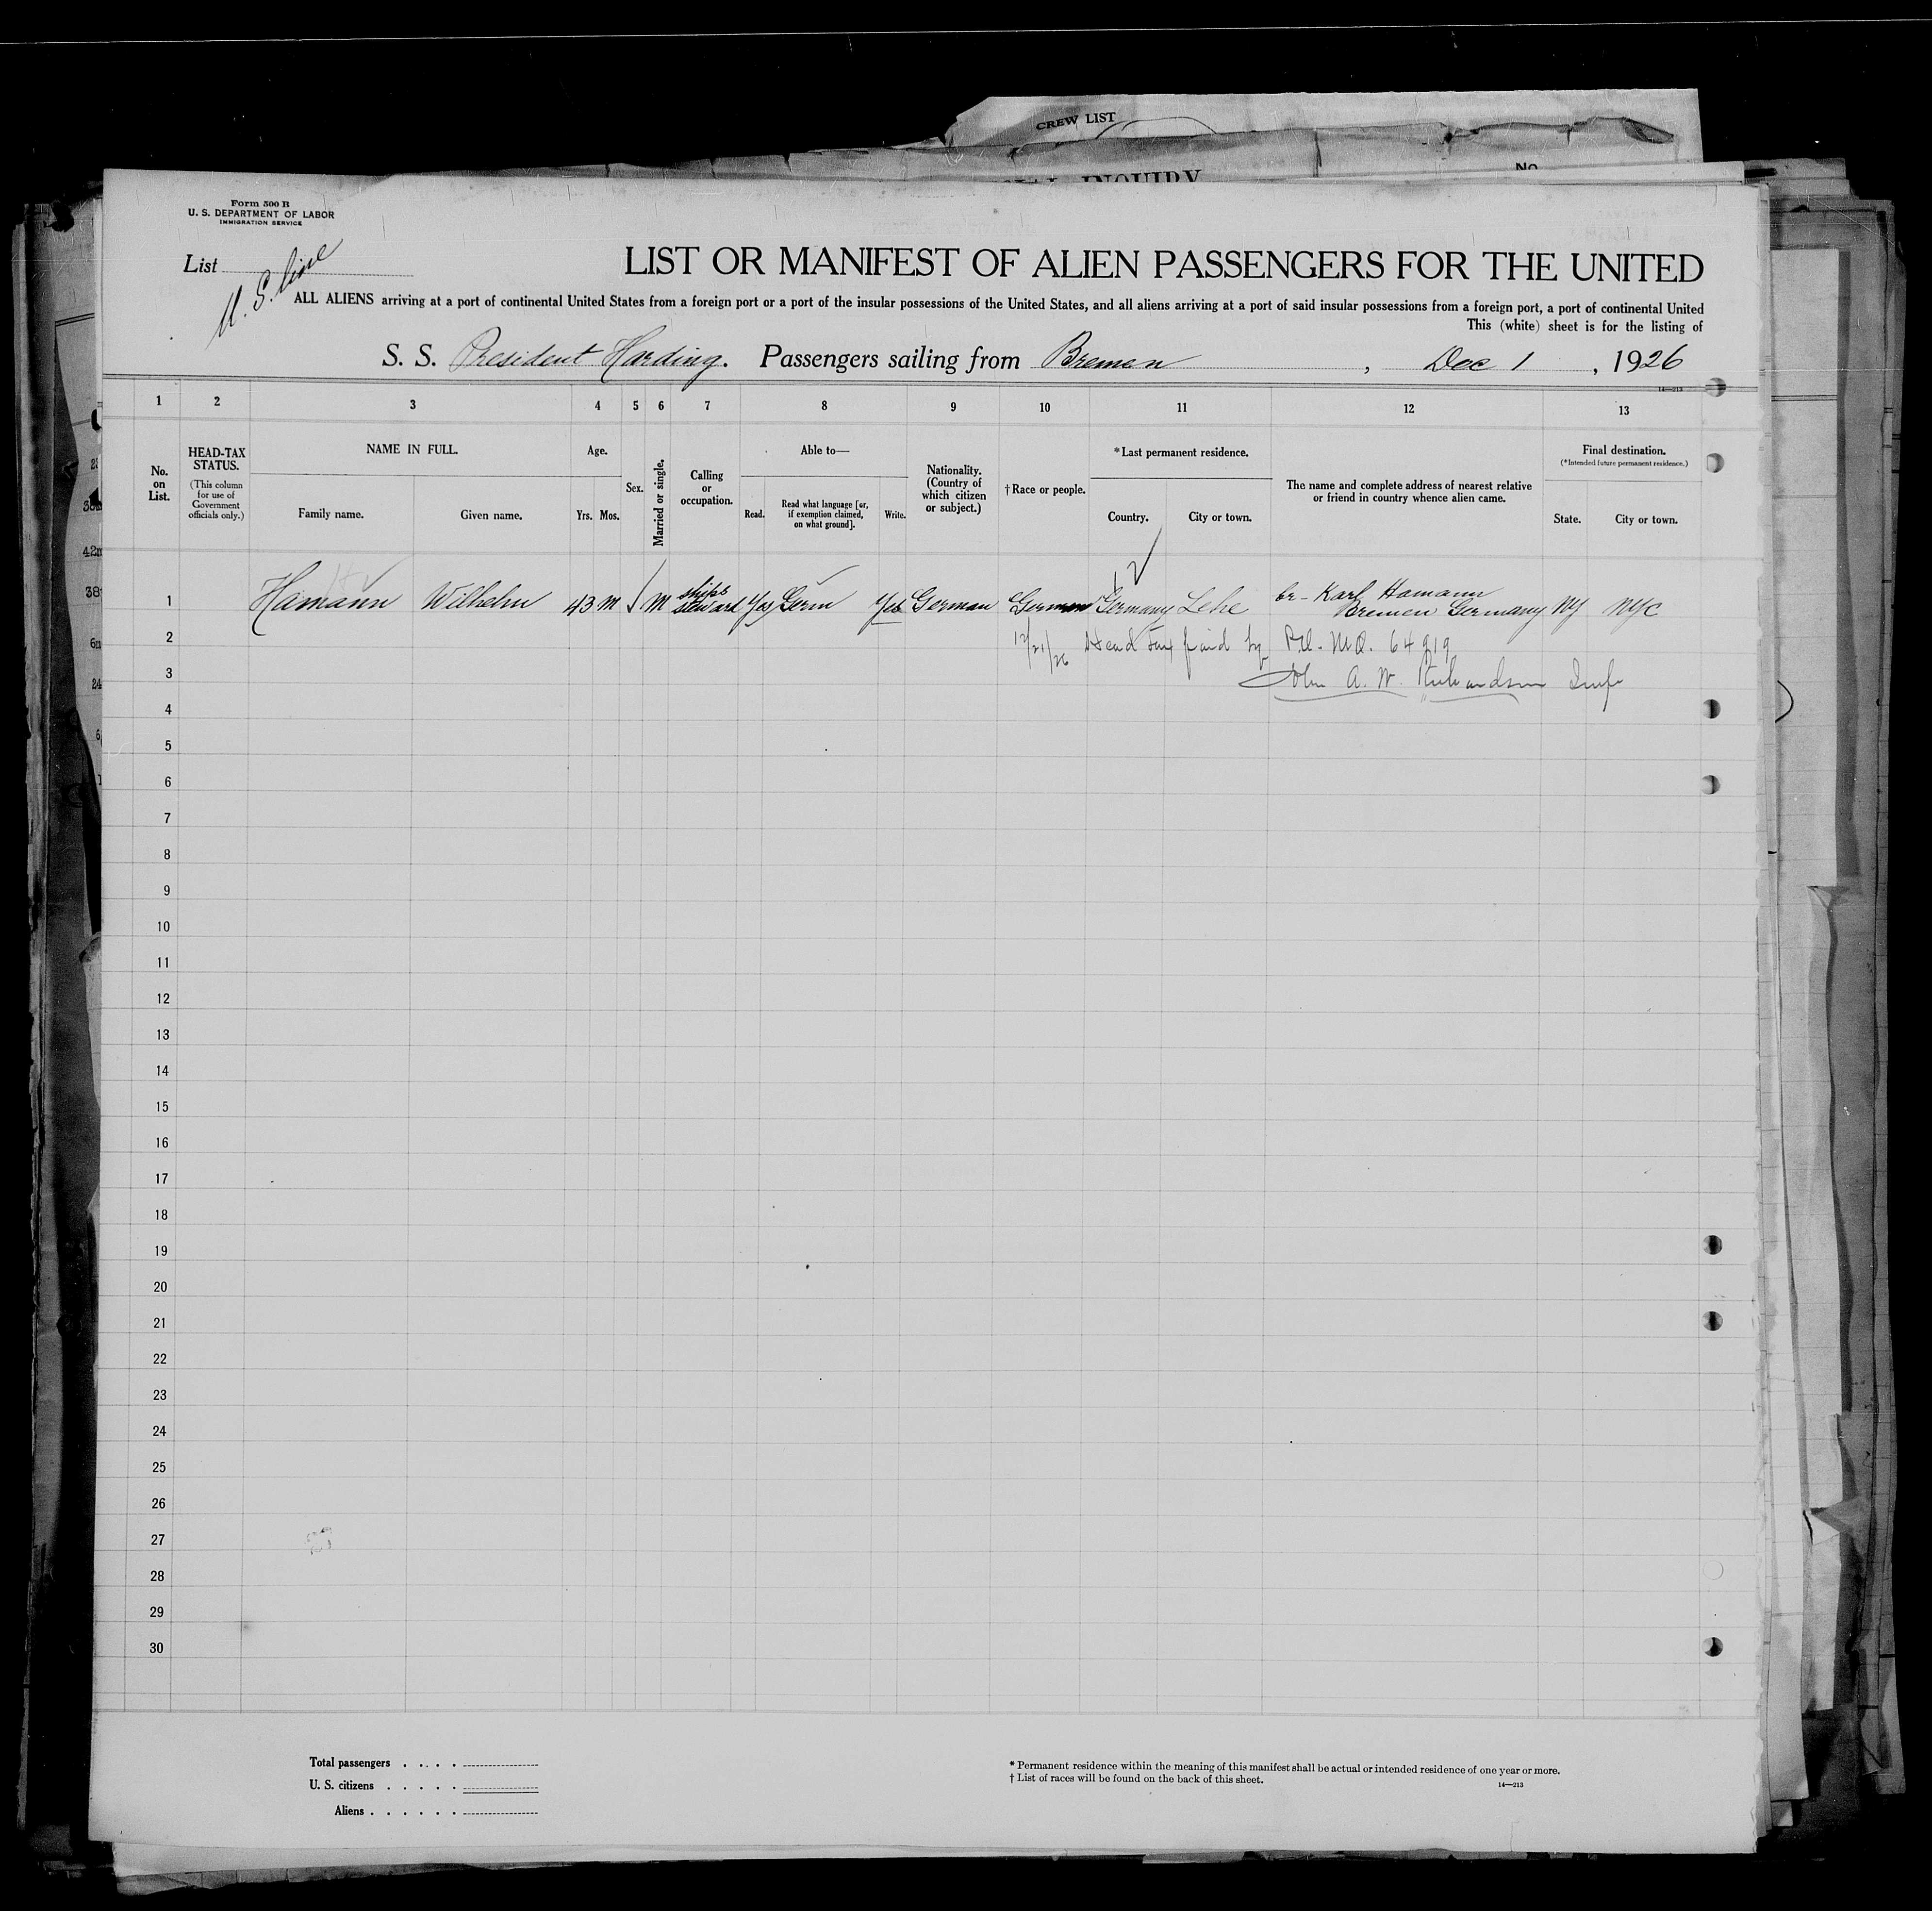 CREW LIST
INQUIRY
No
Form 500 B
U. S. DEPARTMENT OF LABOR
IMMIGRATION SERVICE
List
U. S. Line
LIST OR MANIFEST OF ALIEN PASSENGERS FOR THE UNITED
ALL ALIENS arriving at a port of continental United States from a foreign port or a port of the insular possessions of the United States, and all aliens arriving at a port of said insular possessions from a foreign port, a port of continental United
This (white) sheet is for the listing of
S. S. President Harding. Passengers sailing from Bremen, Dec 1, 1926
14—213
1 2 3 4 5 6 7 8 9 10 11 12 13
No. on List.
HEAD-TAX STATUS.
(This column for use of Government officials only.)
NAME IN FULL.
Family name. Given name.
Age.
Yrs. Mos.
Sex.
Married or single.
Calling or occupation.
Able to—
Read. Read what language [or, if exemption claimed, on what ground]. Write.
Nationality. (Country of which citizen or subject.)
†Race or people.
*Last permanent residence.
Country. City or town.
The name and complete address of nearest relative or friend in country whence alien came.
Final destination.
(*Intended future permanent residence.)
State. City or town.
1 Hamann Wilhelm 43 m M ships steward Yes Germ Yes German German Germany Lehe br- Karl Hamann Bremen Germany NY NYC
2 12/21/26 Head tax paid by M.O. 64919
3 John A. W. Richardson
4
5
6
7
8
9
10
11
12
13
14
15
16
17
18
19
20
21
22
23
24
25
26
27
28
29
30
Total passengers
U. S. citizens
Aliens
* Permanent residence within the meaning of this manifest shall be actual or intended residence of one year or more.
† List of races will be found on the back of this sheet.
14—213